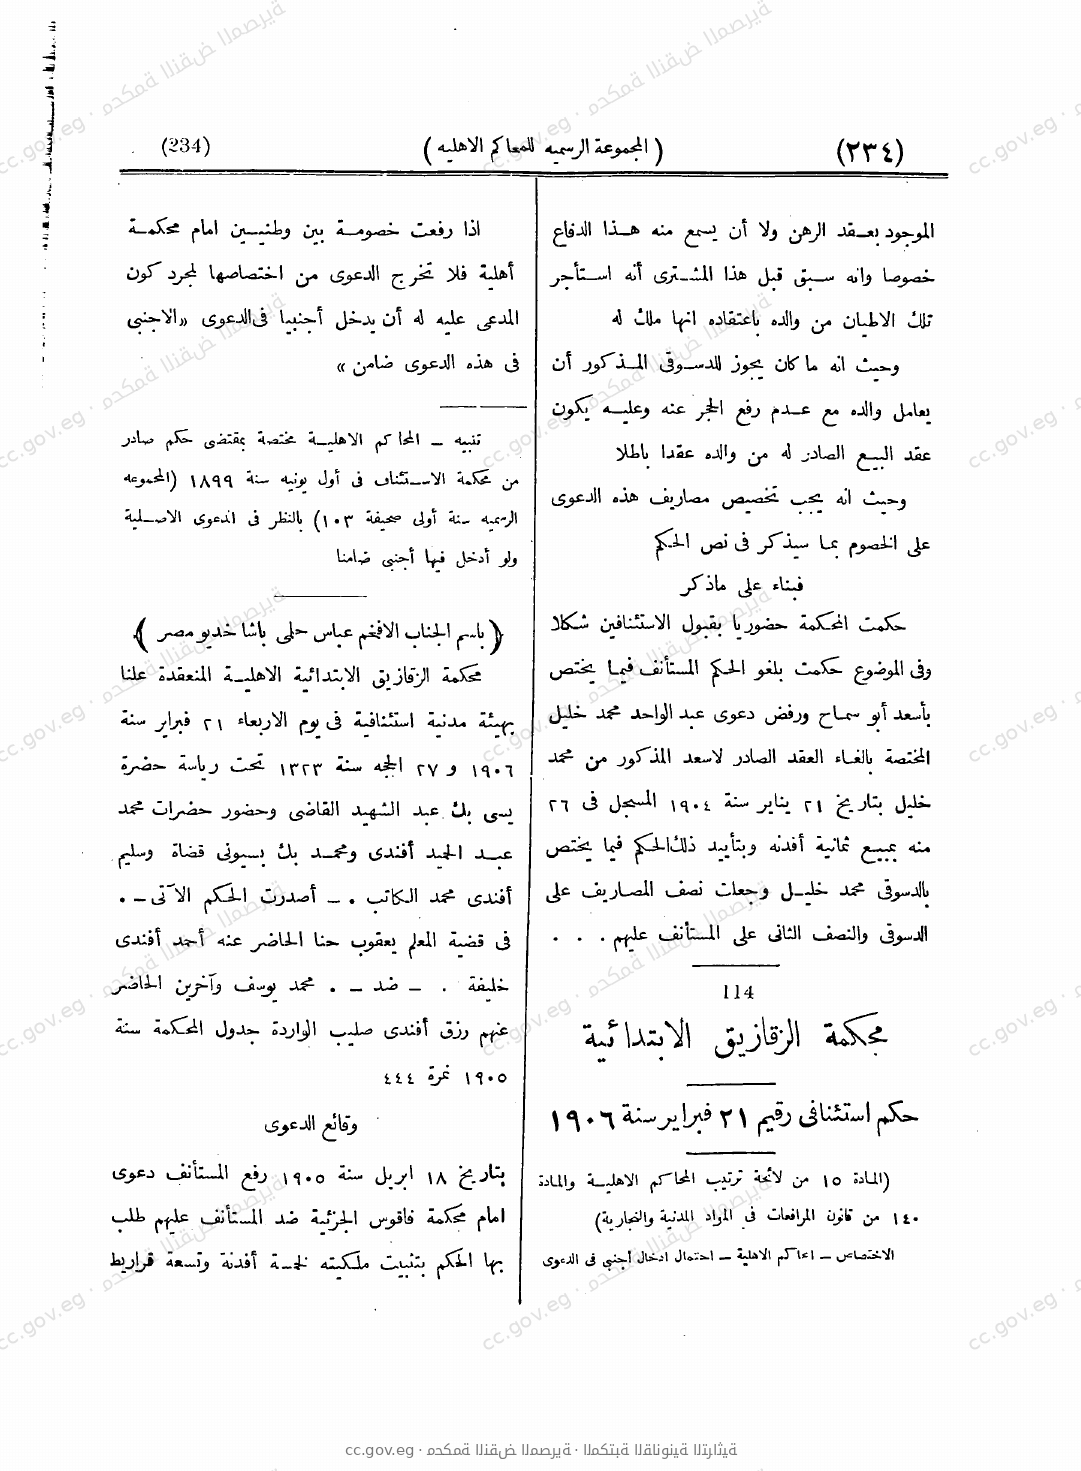 (٢٣٤)
(المجموعة الرسميه للمحاكم الاهليه)
(234)
الموجود بعقد الرهن ولا أن يسمع منه هذا الدفاع
خصوصا وانه سبق قبل هذا المشترى أنه استأجر
تلك الاطيان من والده باعتقاده انها ملك له
وحيث انه ما كان يجوز للدسوقى المذكور أن
يعامل والده مع عدم رفع الحجر عنه وعليه يكون
عقد البيع الصادر له من والده عقدا باطلا
وحيث انه يجب تخصيص مصاريف هذه الدعوى
على الخصوم بما سيذكر فى نص الحكم
فبناء على ماذكر
حكمت المحكمة حضوريا بقبول الاستئنافين شكلا
وفى الموضوع حكمت بلغو الحكم المستأنف فيما يختص
بأسعد أبو سماح ورفض دعوى عبد الواحد محمد خليل
المختصة بالغاء العقد الصادر لاسعد المذكور من محمد
خليل بتاريخ ٢١ يناير سنة ١٩٠٤ المسجل فى ٢٦
منه بمبيع ثمانية أفدنه وبتأييد ذلك الحكم فيما يختص
بالدسوقى محمد خليل وجعلت نصف المصاريف على
الدسوقى والنصف الثانى على المستأنف عليهم . . .
114
محكمة الزقازيق الابتدائية
حكم استئنافى رقيم ٢١ فبراير سنة ١٩٠٦
(المادة ١٥ من لائحة ترتيب المحاكم الاهلية والمادة
١٤٠ من قانون المرافعات فى المواد المدنية والتجارية)
الاختصاص ــ المحاكم الاهلية ــ احتمال ادخال أجنبى فى الدعوى
اذا رفعت خصومة بين وطنيين امام محكمة
أهلية فلا تخرج الدعوى من اختصاصها لمجرد كون
المدعى عليه له أن يدخل أجنبيا فى الدعوى «الاجنبى
فى هذه الدعوى ضامن»
تنبيه ــ المحاكم الاهلية مختصة بمقتضى حكم صادر
من محكمة الاستئناف فى أول يونيه سنة ١٨٩٩ (المجموعه
الرسميه سنة أولى صحيفة ١٠٣) بالنظر فى الدعوى الاصلية
ولو أدخل فيها أجنبى ضامنا
(باسم الجناب الافخم عباس حلمى باشا خديو مصر)
محكمة الزقازيق الابتدائية الاهلية المنعقدة علنا
بهيئة مدنية استئنافية فى يوم الاربعاء ٢١ فبراير سنة
١٩٠٦ و ٢٧ الحجه سنة ١٣٢٣ تحت رياسة حضرة
يسى بك عبد الشهيد القاضى وحضور حضرات محمد
عبد الحميد أفندى ومحمد بك بسيونى قضاة وسليم
أفندى محمد الكاتب . ــ أصدرت الحكم الآتى ــ .
فى قضية المعلم يعقوب حنا الحاضر عنه أحمد أفندى
خليفة . ــ ضد ــ . محمد يوسف وآخرين الحاضر
عنهم رزق أفندى صليب الواردة جدول المحكمة سنة
١٩٠٥ نمرة ٤٤٤
وقائع الدعوى
بتاريخ ١٨ ابريل سنة ١٩٠٥ رفع المستأنف دعوى
امام محكمة فاقوس الجزئية ضد المستأنف عليهم طلب
بها الحكم بتثبيت ملكيته لخمسة أفدنة وتسعة قراريط
cc.gov.eg · محكمة النقض المصرية · المكتبة القانونية التراثية